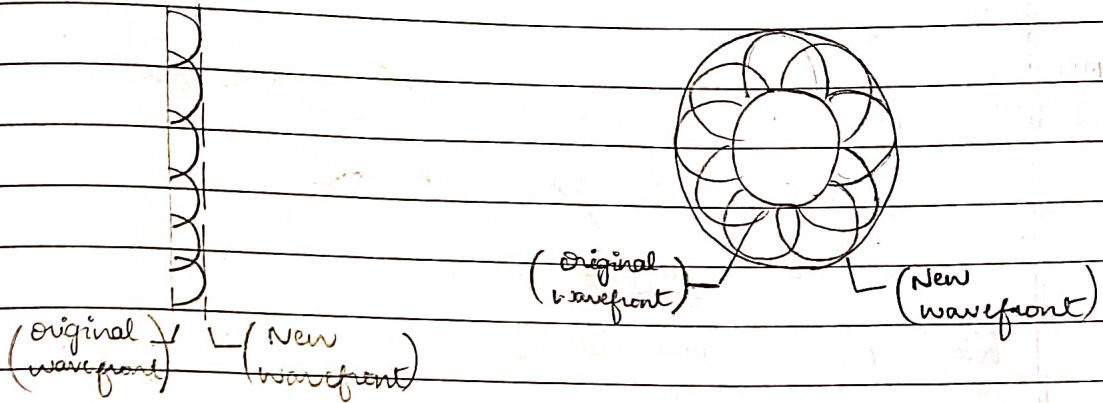 (Original
wavefront)
(New
wavefront)
(Original
wavefront)
(New
wavefront)